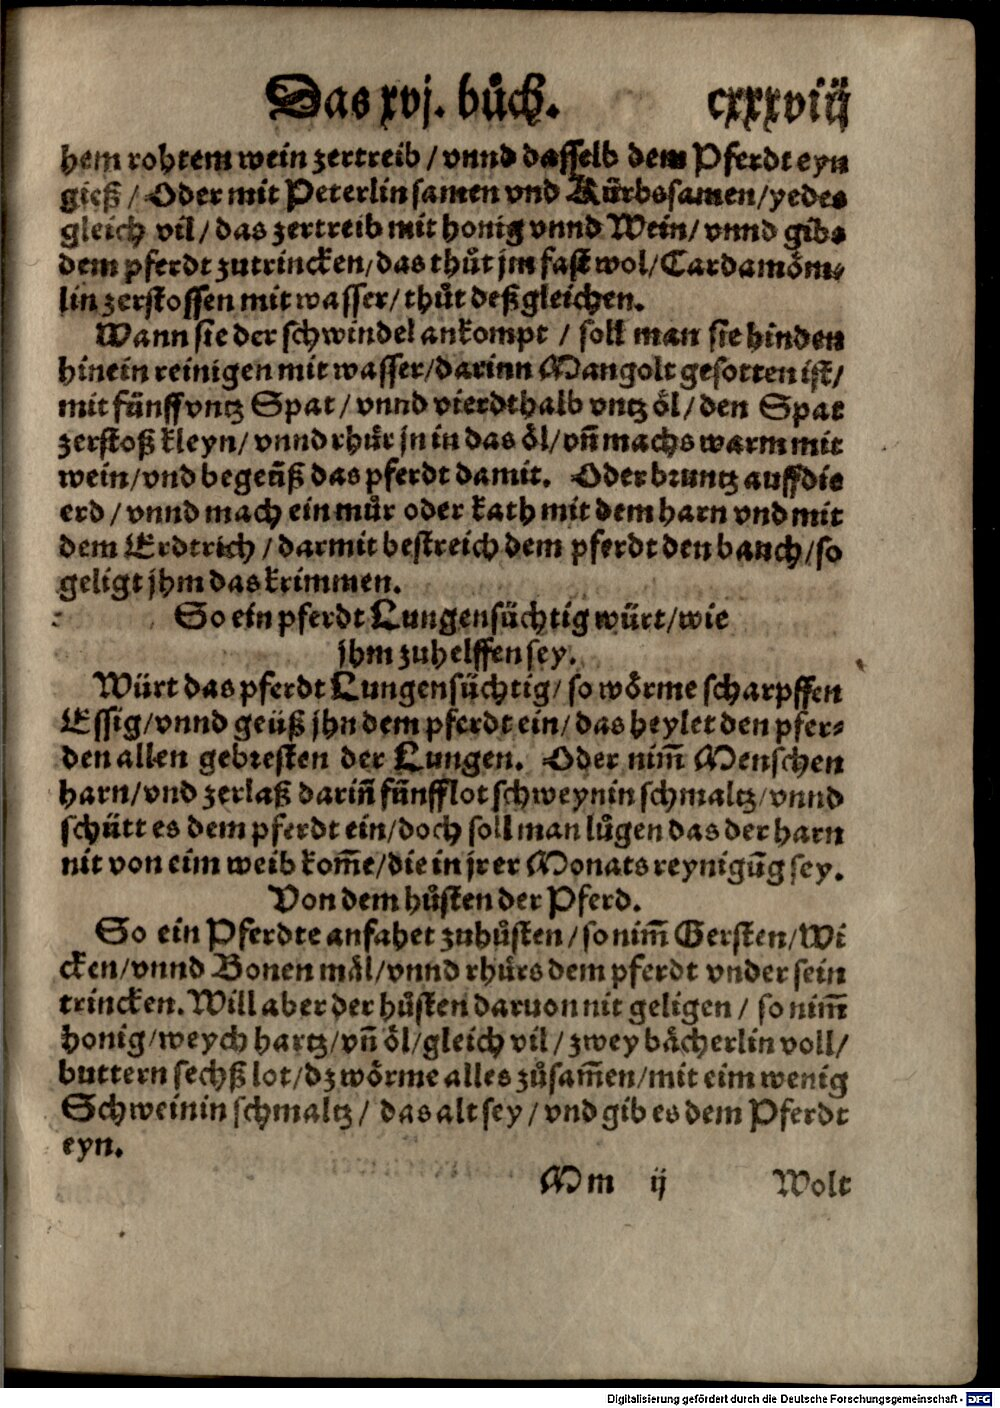 Das xvj. bůch. cxxxviij
hem rohtem wein zertreib / vnnd dasselb dem Pferdt eyn
gieß / Oder mit Peterlin samen vnd Kürbssamen / yedes
gleich vil / das zertreib mit honig vnnd Wein / vnnd gibs
dem pferdt zutrincken / das thůt jm fast wol / Cardamöm-
lin zerstossen mit wasser / thůt deßgleichen.
Wann sie der schwindel ankompt / soll man sie hinden
hinein reinigen mit wasser / darinn Mangolt gesotten ist /
mit fünff vntz Spat / vnnd vierdthalb vntz öl / den Spat
zerstoß kleyn / vnnd rhůr jn in das öl / vñ machs warm mit
wein / vnd begeüß das pferdt damit. Oder bruntz auff die
erd / vnnd mach ein můr oder kath mit dem harn vnd mit
dem Erdtrich / darmit bestreich dem pferdt den bauch / so
geligt jhm das krimmen.
So ein pferdt Lungensüchtig würt / wie
jhm zuhelffen sey.
Würt das pferdt Lungensüchtig / so wörme scharpffen
Essig / vnnd geüß jhn dem pferdt ein / das heylet den pfer-
den allen gebresten der Lungen. Oder nim̃ Menschen
harn / vnd zerlaß dariñ fünff lot schweynin schmaltz / vnnd
schütt es dem pferdt ein / doch soll man lůgen das der harn
nit von eim weib kom̃e / die in jrer Monats reynigũg sey.
Von dem hůsten der Pferd.
So ein Pferdte anfahet zuhůsten / so nim̃ Gersten / Wi
cken / vnnd Bonen mäl / vnnd rhůrs dem pferdt vnder sein
trincken. Will aber der hůsten daruon nit geligen / so nim̃
honig / weych hartz / vñ öl / gleich vil / zwey bächerlin voll /
buttern sechß lot / dz wörme alles zůsam̃en / mit eim wenig
Schweinin schmaltz / das alt sey / vnd gib es dem Pferdt
eyn.
Mm ij Wolt
Digitalisierung gefördert durch die Deutsche Forschungsgemeinschaft - DFG